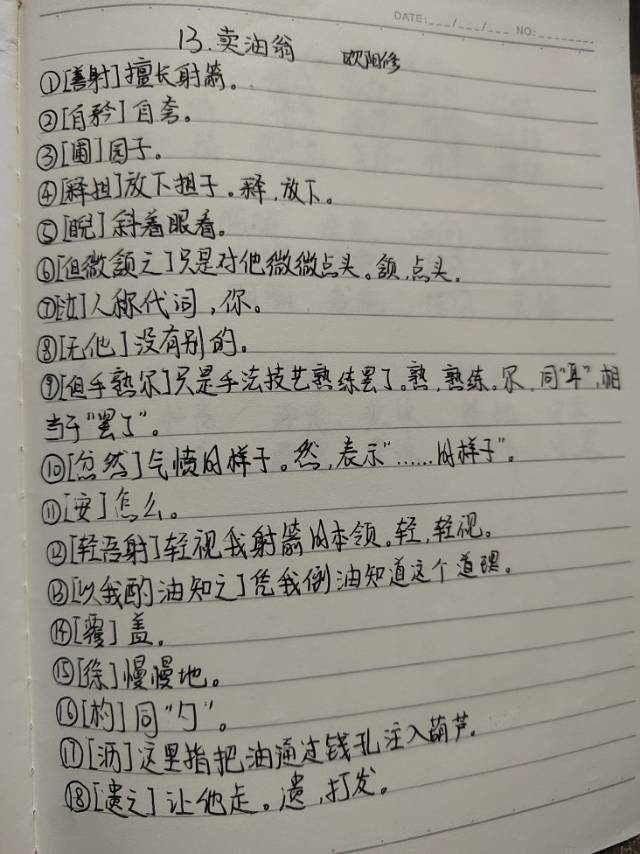 DATE:___/___/___ NO:________
13.卖油翁 欧阳修
①[善射]擅长射箭。
②[自矜]自夸。
③[圃]园子。
④[释担]放下担子。释,放下。
⑤[睨]斜着眼看。
⑥[但微颔之]只是对他微微点头。颔,点头。
⑦[汝]人称代词,你。
⑧[无他]没有别的。
⑨[但手熟尔]只是手法技艺熟练罢了。熟,熟练。尔,同“耳”,相
当于“罢了”。
⑩[忿然]气愤的样子。然,表示“……的样子”。
⑪[安]怎么。
⑫[轻吾射]轻视我射箭的本领。轻,轻视。
⑬[以我酌油知之]凭我倒油知道这个道理。
⑭[覆]盖。
⑮[徐]慢慢地。
⑯[杓]同“勺”。
⑰[沥]这里指把油通过钱孔注入葫芦。
⑱[遣之]让他走。遣,打发。